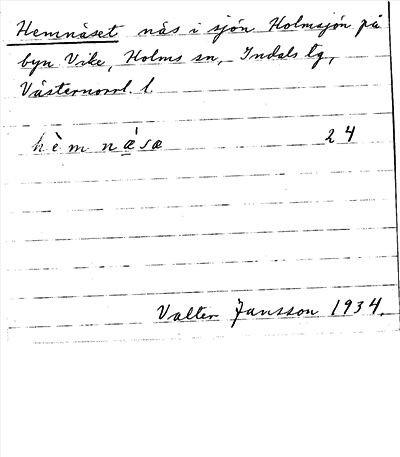 Hemnäset näs i sjön Holmsjön på
byn Vike, Holms sn, Indals tg,
Västernorrl. l.
hèm næ´sæ 24
Valter Jansson 1934.